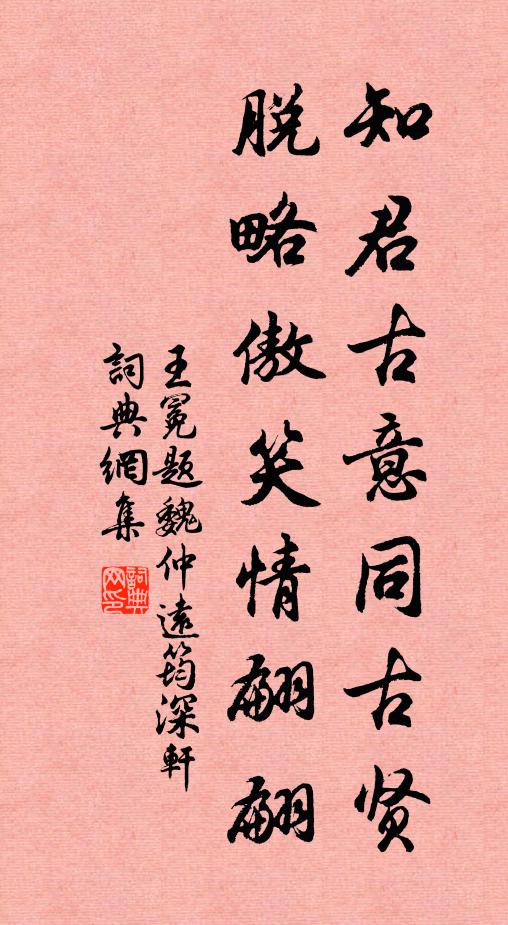 知君古意同古贤
脱略傲笑情翩翩
王冕题魏仲遠筠深軒
詞典網集
詞典网印